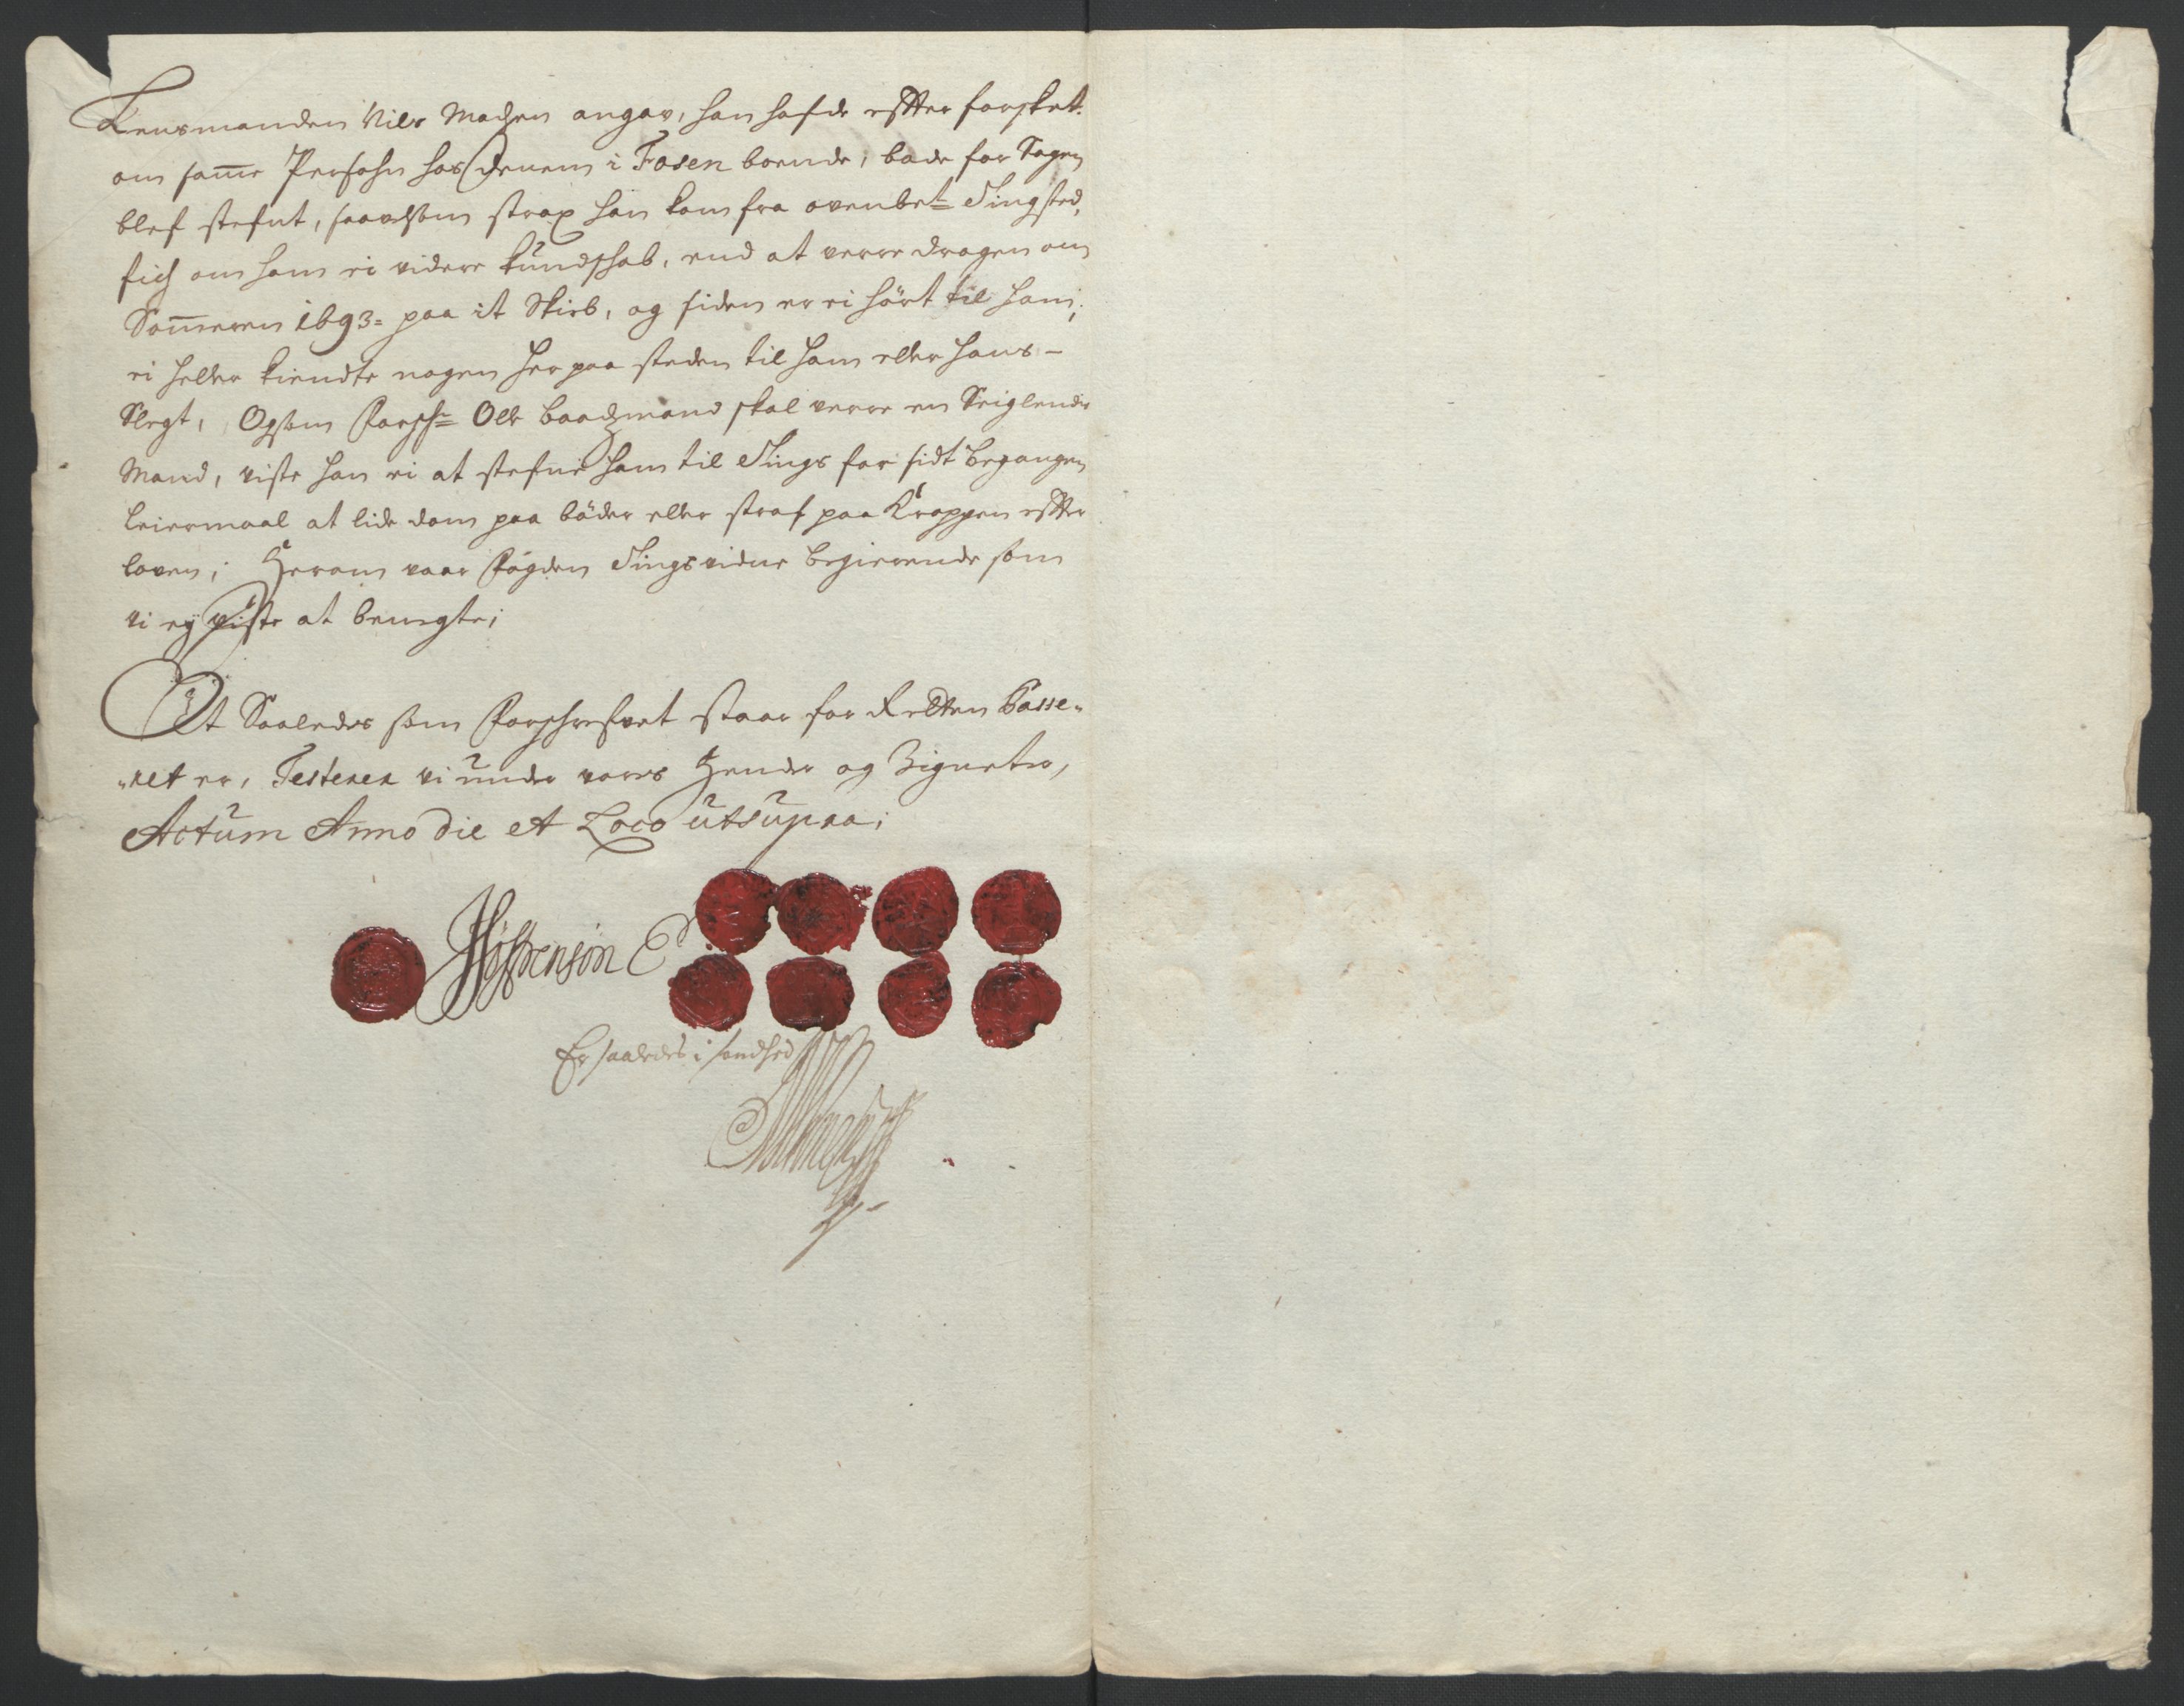 Lensmanden Nils Madsen angav, han hafde effter forsket
om samme Persohn hos dennem i Fosen boende, bade for Sagen
blef stefnt, saavelsom strax han kom fra ovenbete Tingsted,
fich om ham ei videre kundschab, end at verre dragen om
Sommeren 1693 = paa it Skieb, og siden er ei hört til ham,
ei heller kiendte nogen her paa steden til ham eller hans -
Slegt, Ogsom Forschne Olle baadzmand skal verre en Seiglende
Mand, viste han ei at stefne ham til Tings for sidt begangen
leiermaal at lide dom paa böder eller straf paa Kroppen effter
loven; Herom vaar Fogden Tingsvidne begierende som
vi ey viste at benegte;
At Saaledes som Forschrefvet staar for Retten Passe-
ret er, Testerer vi under vores Hender og Zigneter,
Actum Anno die et Loco utsupra;
Er saaledes i sandhed